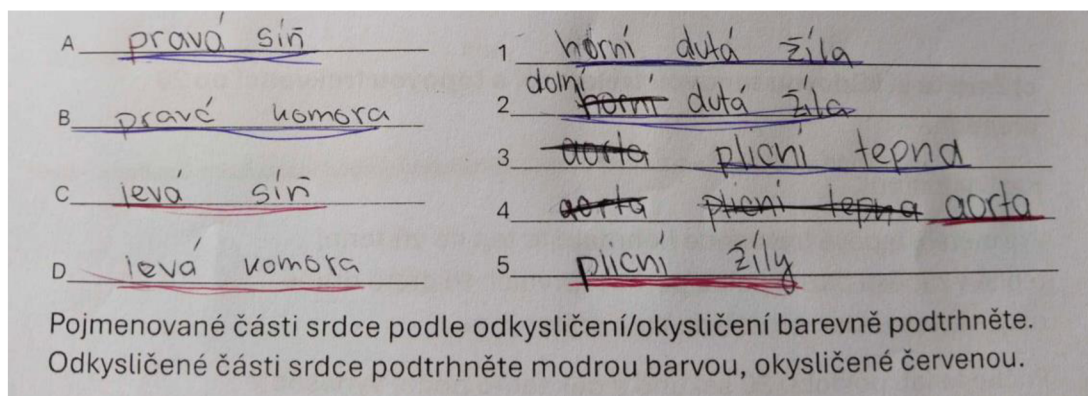 A pravá síň
B pravá komora
C levá síň
D levá komora
1 horní dutá žíla
dolní
2 horní dutá žíla
3 aorta plicní tepna
4 aorta plicní tepna aorta
5 plicní žíly
Pojmenované části srdce podle odkysličení/okysličení barevně podtrhněte.
Odkysličené části srdce podtrhněte modrou barvou, okysličené červenou.